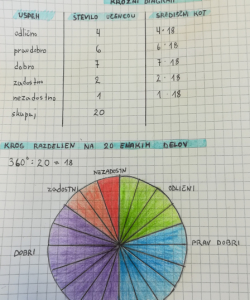 KROŽNI DIAGRAMI
USPEH ŠTEVILO UČENCEV SREDIŠČNI KOT
odlično 4 4·18
prav dobro 6 6·18
dobro 7 7·18
zadostno 2 2·18
nezadostno 1 1·18
skupaj 20
KROG RAZDELJEN NA 20 ENAKIH DELOV
360°:20=18
NEZADOSTNI
ZADOSTNI
ODLIČNI
DOBRI
PRAV DOBRI